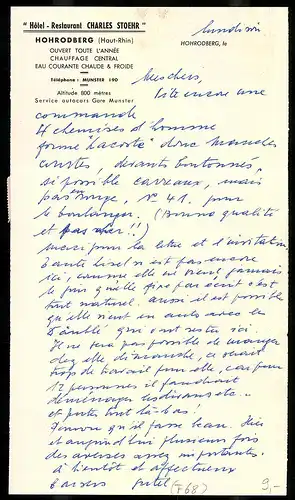 "Hôtel - Restaurant CHARLES STOEHR"
HOHRODBERG (Haut-Rhin)
OUVERT TOUTE L'ANNÉE
CHAUFFAGE CENTRAL
EAU COURANTE CHAUDE & FROIDE
Téléphone: MUNSTER 190
Altitude 800 mètres
Service autocars Gare Munster
lundi soir
HOHRODBERG, le
Meschers,
Vite encore une
commande
4 chemises d'homme
forme "Lacoste" donc manches
courtes devants boutonnés,
si possible carreaux, mais
pas rouge, N° 41. pour
le boulanger. (Bonne qualité
et pas cher!!)
merci pour la lettre et l'invitation
Tante Lisel n'est pas encore
ici, comme elle ne vient jamais
le jour qu'elle fixe par écrit c'est
tout naturel. aussi il est possible
qu'elle vient en auto avec les
que ont resté ici.
Il ne sera pas possible de manger
chez elle dimanche, ce serait
trop de travail pour elle, car pour
12 personnes il faudrait
déménager
et puis tout là-bas!
qu'il fasse beau. Hier
et aujourd'hui plusieurs fois
des averses assez importantes.
à bientôt et affectueux
baisers
(768) 9,-